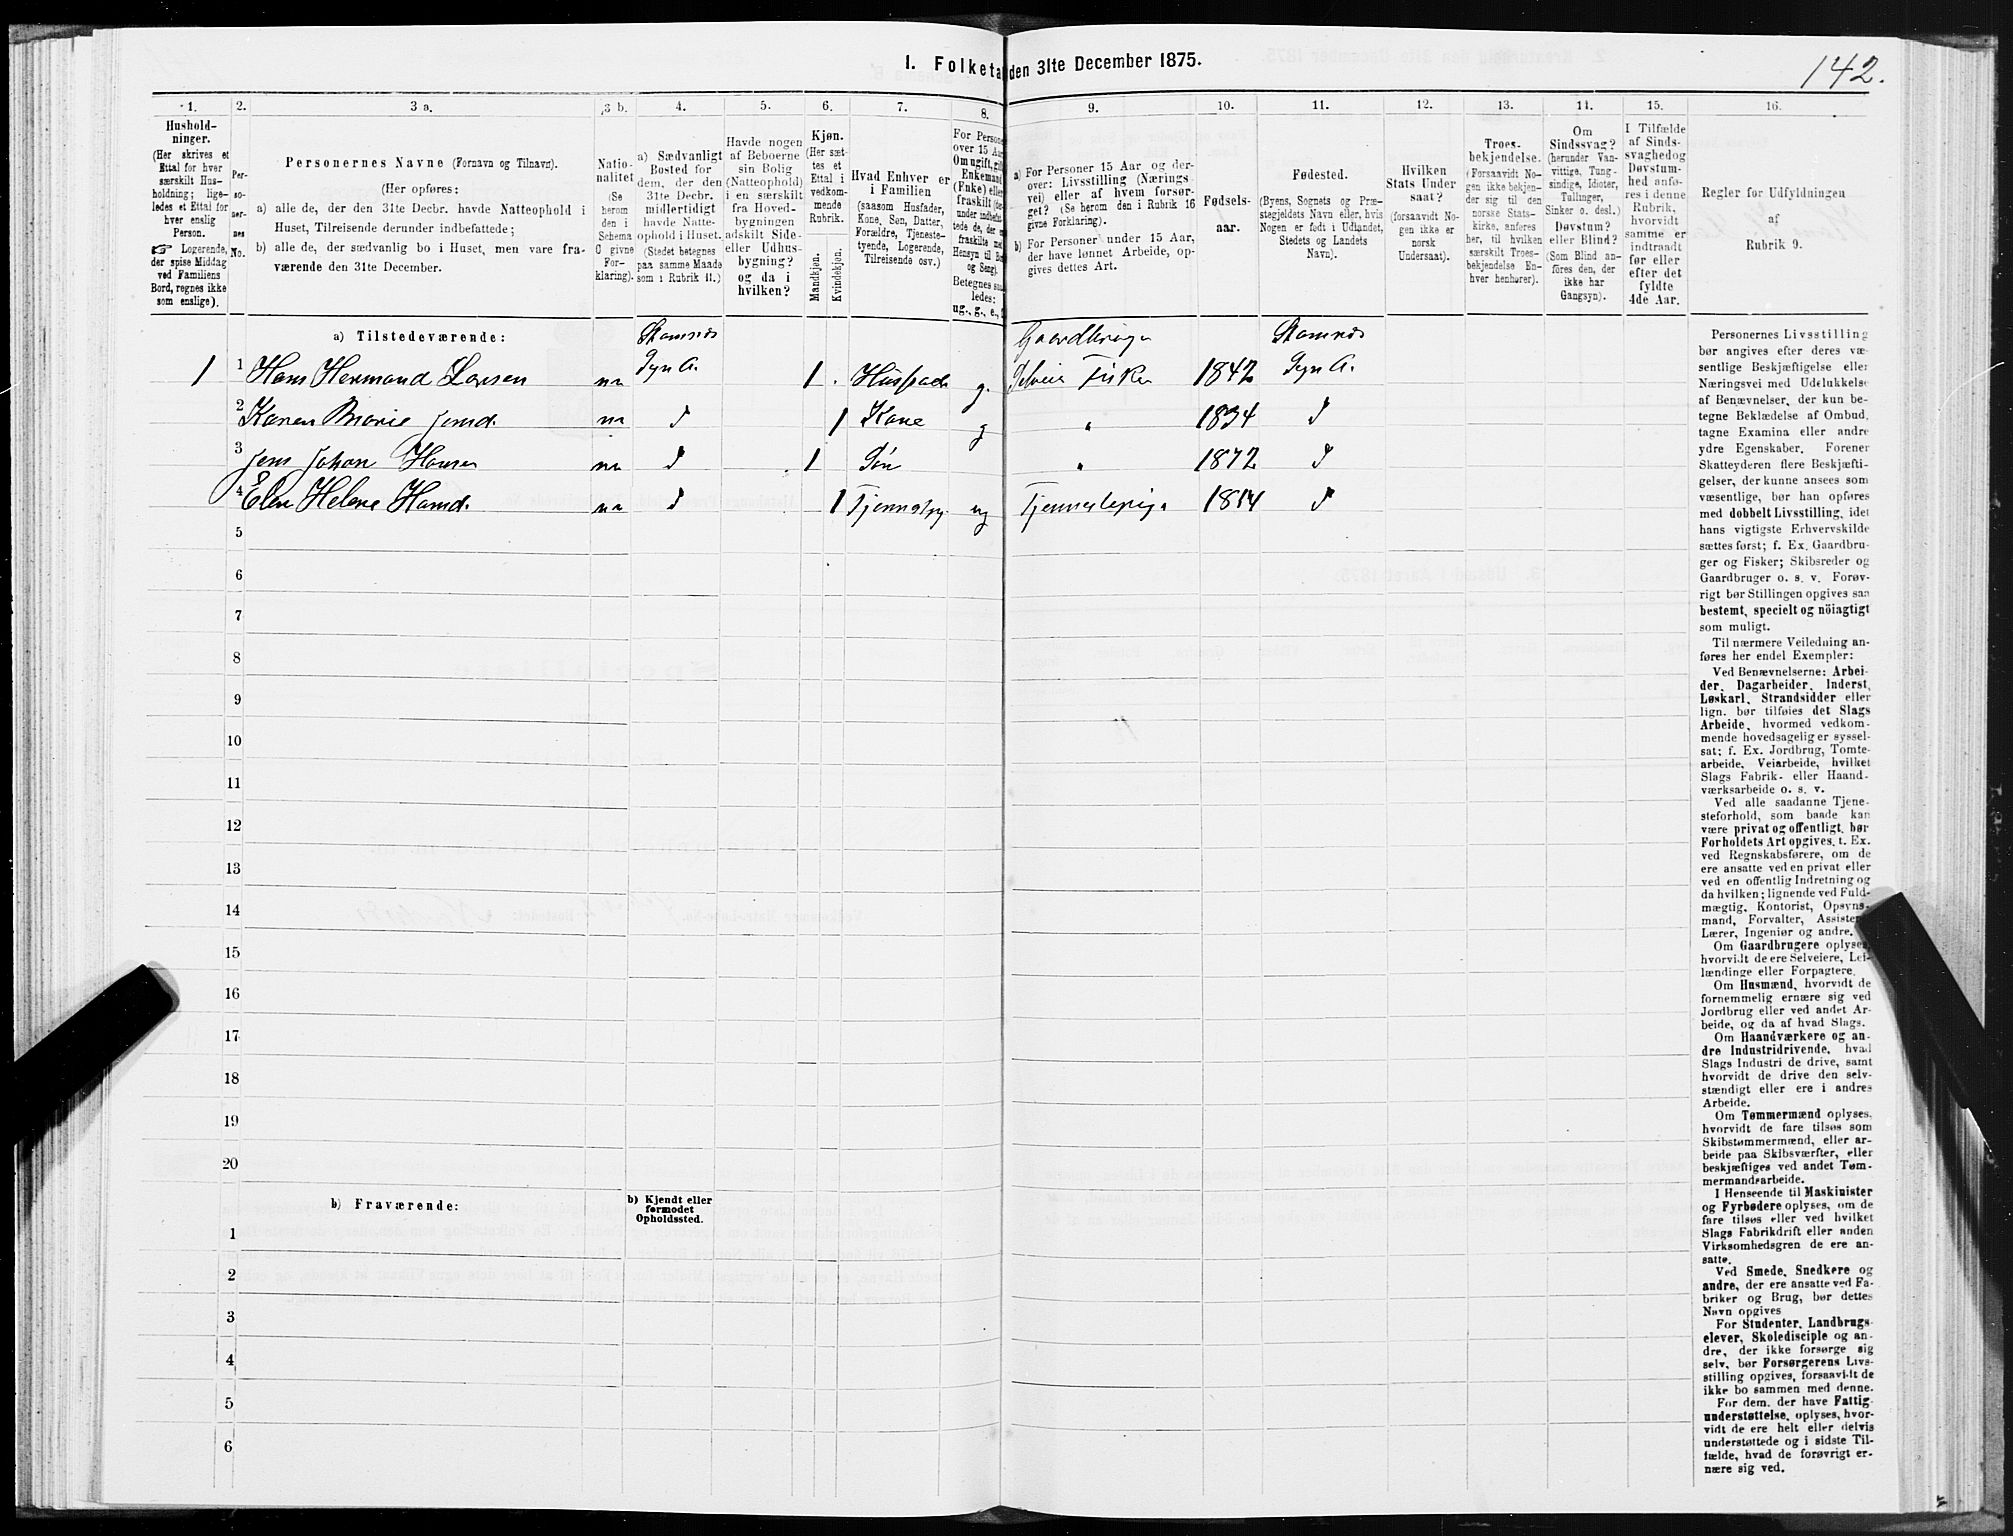 142.
I. Folketa den 31te December 1875.
1. 2. 3 a. 3 b. 4. 5. 6. 7. 8. 9. 10. 11. 12. 13. 14. 15. 16.
Hushold-
ninger.
(Her skrives et
Ettal for hver
særskilt Hus-
holdning; lige-
ledes et Ettal for
hver enslig
Person.
☞ Logerende,
der spise Middag
ved Familiens
Bord, regnes ikke
som enslige).
Per-
so-
ner-
nes
No.
Personernes Navne (Fornavn og Tilnavn).
(Her opføres:
a) alle de, der den 31te Decbr. havde Natteophold i
Huset, Tilreisende derunder indbefattede;
b) alle de, der sædvanlig bo i Huset, men vare fra-
værende den 31te December.
Natio-
nalitet
(Se
herom
den i
Schema
0 givne
For-
klaring).
a) Sædvanligt
Bosted for
dem, der den
31te Decbr.
midlertidigt
havde Natte-
ophold i Huset.
(Stedet betegnes
paa samme Maade
som i Rubrik 11.)
Havde nogen
af Beboerne
sin Bolig
(Natteophold)
i en særskilt
fra Hoved-
bygningen
adskilt Side-
eller Udhus-
bygning?
og da i
hvilken?
Kjøn.
(Her sæt-
tes et
Ettal i
vedkom-
mende
Rubrik.
Mandkjøn.
Kvindekjøn.
Hvad Enhver er
i Familien
(saasom Husfader,
Kone, Søn, Datter,
Forældre, Tjeneste-
tyende, Logerende,
Tilreisende osv.)
For Persone
over 15 Aar
Om ugift, gift
Enkemand
(Enke) eller
fraskilt
Betegnes saa-
ledes:
ug., g., e.,
a) For Personer 15 Aar og der-
over: Livsstilling (Nærings-
vei) eller af hvem forsør-
get? (Se herom den i Rubrik 16
givne Forklaring).
b) For Personer under 15 Aar,
der have lønnet Arbeide, op-
gives dettes Art.
Fødsels-
aar.
Fødested.
(Byens, Sognets og Præ-
stegjeldets Navn eller, hvis
Nogen er født i Udlandet,
Stedets og Landets
Navn).
Hvilken
Stats Under
saat?
(forsaavidt No-
gen ikke er
norsk
Undersaat).
Troes-
bekjendelse.
(Forsaavidt No-
gen ikke bekjen-
der sig til den
norske Stats-
kirke, anføres
her, til hvilken
særskilt Troes-
bekjendelse En-
hver henhører).
Om
Sindssvag?
(herunder Van-
vittige, Tung-
sindige, Idioter,
Tullinger,
Sinker o. desl.)
Døvstum?
eller Blind?
(Som Blind an-
føres den, der
ikke har
Gangsyn).
I Tilfælde
af Sinds-
svaghed og
Døvstum-
hed anfø-
res i denne
Rubrik,
hvorvidt
samme er
indtraadt
før eller
efter det
fyldte
4de Aar.
Regler for Udfyldningen
af
Rubrik 9.
a) Tilstedeværende: Stamnes Gaardbruger Stamnes
1 1 Hans Hermand Larsen nn 1 g. Selveier Fisker 1842
2 Karen Marie nn 1 Kone g " 1834
3 Jens Johan Hansen nn 1 Søn " 1872
4 Elen Helene nn 1 ug 1854
5
6
7
8
9
10
11
12
13
14
15
16
17
18
19
20
b) Fraværende:
b) Kjendt eller
formodet
Opholdssted.
1
2
3
4
5
6
Personernes Livsstilling
bør angives efter deres væ-
sentlige Beskjæftigelse eller
Næringsvei med Udelukkelse
af Benævnelser, der kun be-
tegne Beklædelse af Ombud,
tagne Examina eller andre
ydre Egenskaber. Forener
Skatteyderen flere Beskjæfti-
gelser, der kunne ansees som
væsentlige, bør han opføres
med dobbelt Livsstilling, idet
hans vigtigste Erhvervskilde
sættes først; f. Ex. Gaardbru-
ger og Fisker; Skibsreder og
Gaardbruger o. s. v. Forøv-
rigt bør Stillingen opgives saa
bestemt, specielt og nöiagtigt
som muligt.
Til nærmere Veiledning an-
føres her endel Exempler:
Ved Benævnelserne: Arbei-
der, Dagarbeider, Inderst,
Løskarl, Strandsidder eller
lign. bør tilføies det Slags
Arbeide, hvormed vedkom-
mende hovedsagelig er syssel-
sat; f. Ex. Jordbrug, Tomte-
arbeide, Veiarbeide, hvilket
Slags Fabrik- eller Haand-
værksarbeide o. s. v.
Ved alle saadanne Tjene-
steforhold, som baade kan
være privat og offentligt, bør
Forholdets Art opgives, t. Ex.
ved Regnskabsførere, om de
ere ansatte ved en privat eller
ved en offentlig Indretning og
da hvilken; lignende ved Fuld-
mægtig, Kontorist, Opsyns-
mand, Forvalter, Assistent,
Lærer, Ingeniør og andre.
Om Gaardbrugere oplyses,
hvorvidt de ere Selveiere, Lei-
lændinge eller Forpagtere.
Om Husmænd, hvorvidt de
fornemmelig ernære sig ved
Jordbrug eller ved andet Ar-
beide, og da af hvad Slags.
Om Haandværkere og an-
dre Industridrivende, hvad
Slags Industri de drive, samt
hvorvidt de drive den selv-
stændigt eller ere i andres
Arbeide.
Om Tømmermænd oplyses,
hvorvidt de fare tilsøs som
Skibstømmermænd, eller ar-
beide paa Skibsværfter, eller
beskjæftiges ved andet Tøm-
mermandsarbeide.
I Henseende til Maskinister
og Fyrbødere oplyses, om de
fare tilsøs eller ved hvilket
Slags Fabrikdrift eller anden
Virksomhedsgren de ere an-
satte.
Ved Smede, Snedkere og
andre, der ere ansatte ved Fa-
briker og Brug, bør dettes
Navn opgives
For Studenter, Landbrugs-
elever, Skoledisciple og an-
dre, der ikke forsørge sig
selv, bør Forsørgerens Livs-
stilling opgives, forsaavidt de
ikke bo sammen med denne.
For dem, der have Fattig-
understøttelse, oplyses, hvor-
vidt de ere helt eller delvis
understøttede og i sidste Til-
fælde, hvad de forøvrigt er-
nære sig ved.